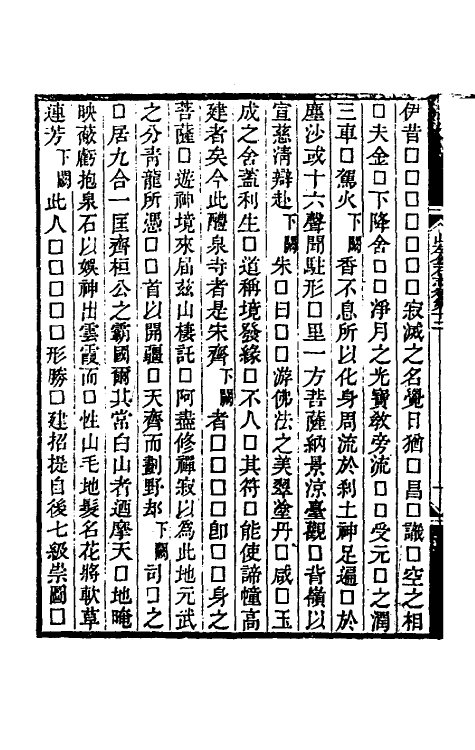 伊昔□□□□□□□□□寂滅之名覺日猶□昌□議□空之相
□夫金□下降舍□□淨月之光寶敎旁流□□受元□之潤
三車□駕火下闕香不息所以化身周流於刹土神足遍□於
塵沙或十六聲聞駐形□里一方菩薩納景涼臺觀□背嶺以
宣慈淸辯赴下闕朱□日□□游佛法之美翠塗丹□咸□玉
成之舍蓋利生□道稱境發緣□不入□其符□能使諦幢高
建者矣今此醴泉寺者是朱齊下闕者□□□□卽□□身之
菩薩□遊神境來屆茲山棲託□阿盡修禪寂以為此地元武
之分靑龍所憑□□首以開疆□天齊而劃野却下闕司□之
□居九合一匡齊桓公之霸國爾其常白山者迺摩天□地晻
映蔽虧抱泉石以娛神出雲霞而□性山毛地髮名花將軟草
連芳下闕此人□□□□□形勝□建招提自後七級崇圖□